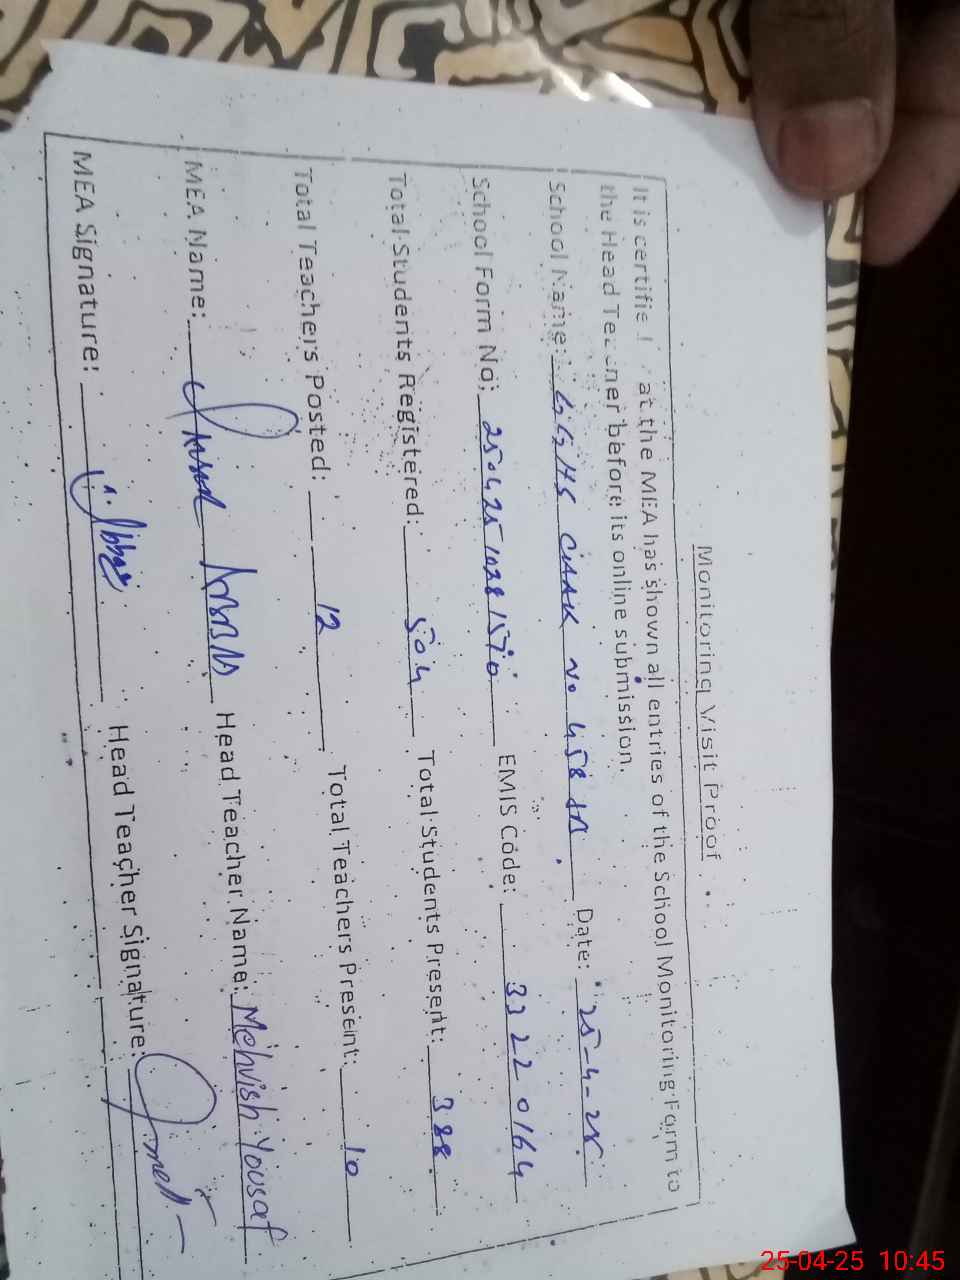 Monitoring Visit Proof
It is certified that the MEA has shown all entries of the School Monitoring Form to
the Head Teacher before its online submission.
School Name: GGHS CHAK NO 458 JB Date: 25-4-25
School Form No: 250425 1028 1570 EMIS Code: 33220164
Total Students Registered: 504 Total Students Present: 388
Total Teachers Posted: 12 Total Teachers Present: 10
MEA Name: Head Teacher Name: Mehvish Yousaf
MEA Signature: Head Teacher Signature:
25-04-25 10:45